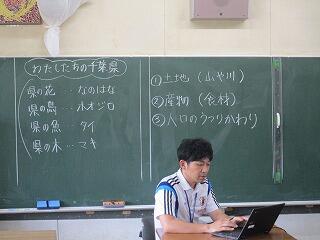 わたしたちの千葉県
県の花 … なのはな
県の鳥 … ホオジロ
県の魚 … タイ
県の木 … マキ
①土地（山や川）
②産物（食材）
③人口のうつりかわり